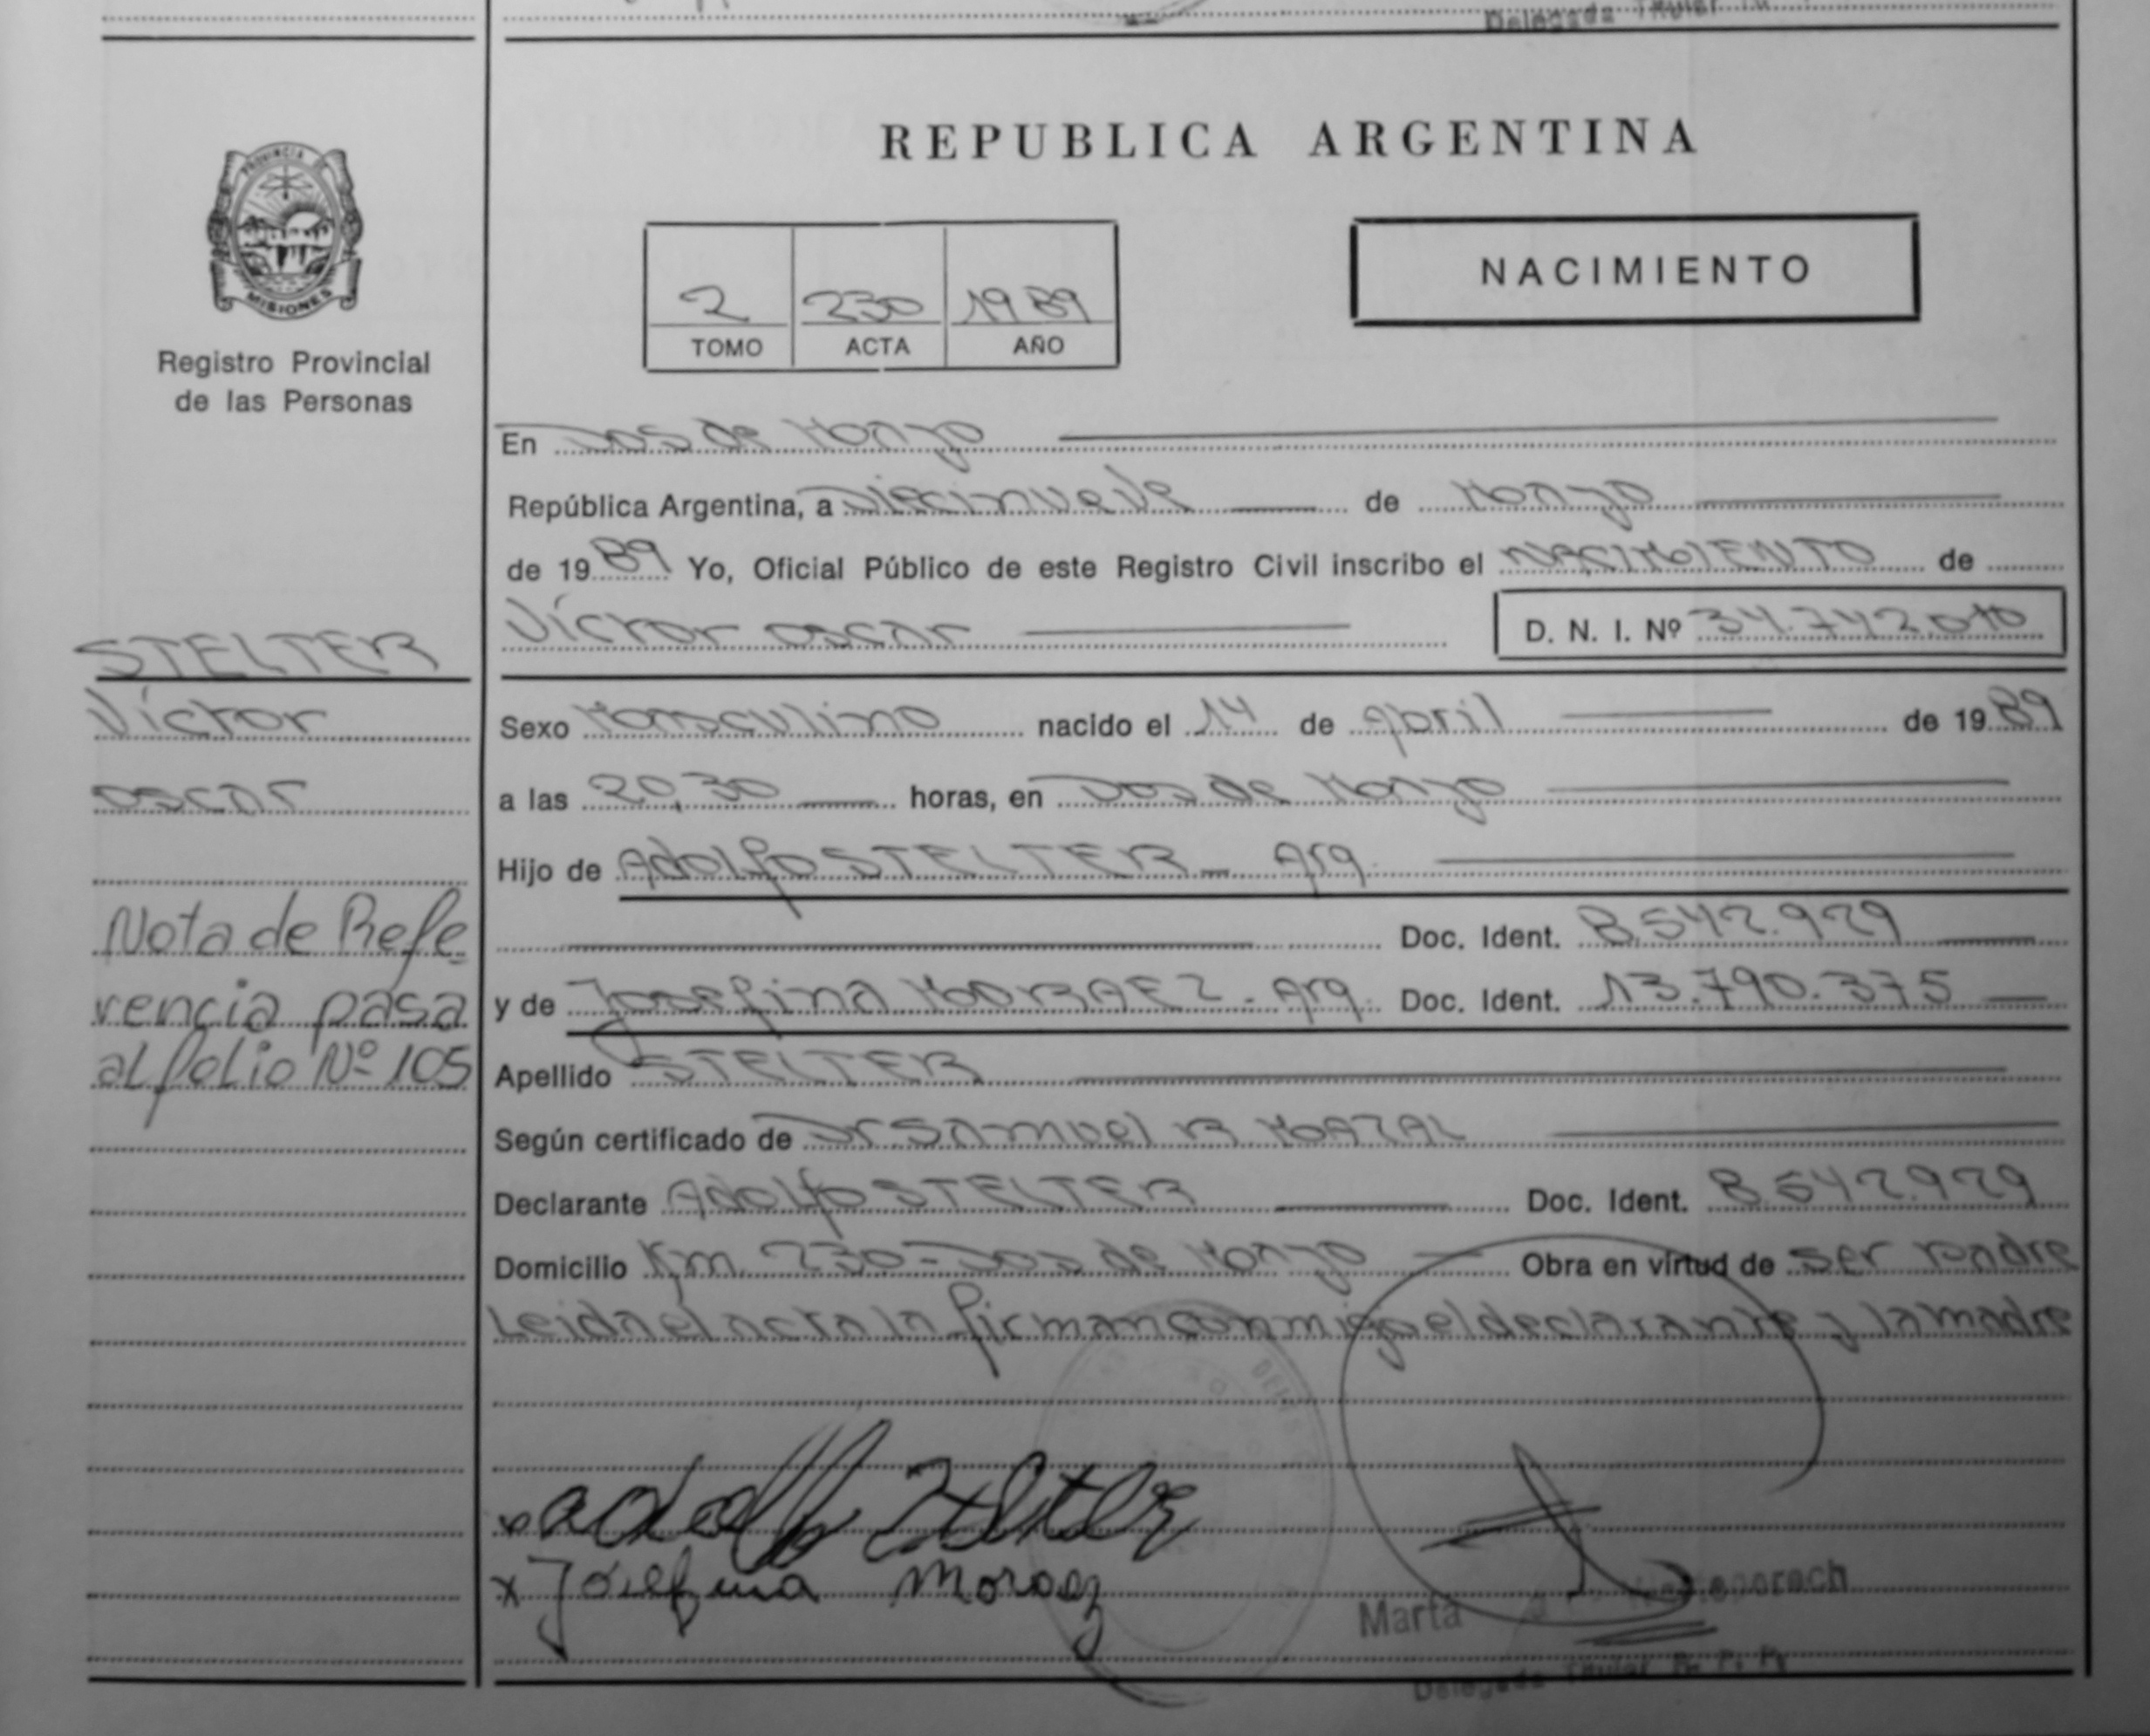 Delegada Titular
PROVINCIA
MISIONES
Registro Provincial
de las Personas
REPUBLICA ARGENTINA
NACIMIENTO
2 230 1989
TOMO ACTA AÑO
En Dos de Mayo
República Argentina, a Diecinueve de Mayo
de 1989 Yo, Oficial Público de este Registro Civil inscribo el NACIMIENTO de
Víctor oscar D. N. I. Nº 34.742.010
STELTER
Víctor
oscar
Nota de Refe
rencia pasa
al folio Nº 105
Sexo Masculino nacido el 14 de Abril de 1989
a las 20,30 horas, en Dos de Mayo
Hijo de Adolfo STELTER - Arg.
Doc. Ident. 8.542.929
y de Josefina MORAEZ - Arg. Doc. Ident. 13.790.375
Apellido STELTER
Según certificado de Dr Samuel R MAZAL
Declarante Adolfo STELTER Doc. Ident. 8.542.929
Domicilio Km. 230 - Dos de Mayo Obra en virtud de ser padre
Leida el acta la firman conmigo el declarante y la madre
x Adolfo Stelter
x Josefina Moraez
Marta
Delegada Titular R. P. P.